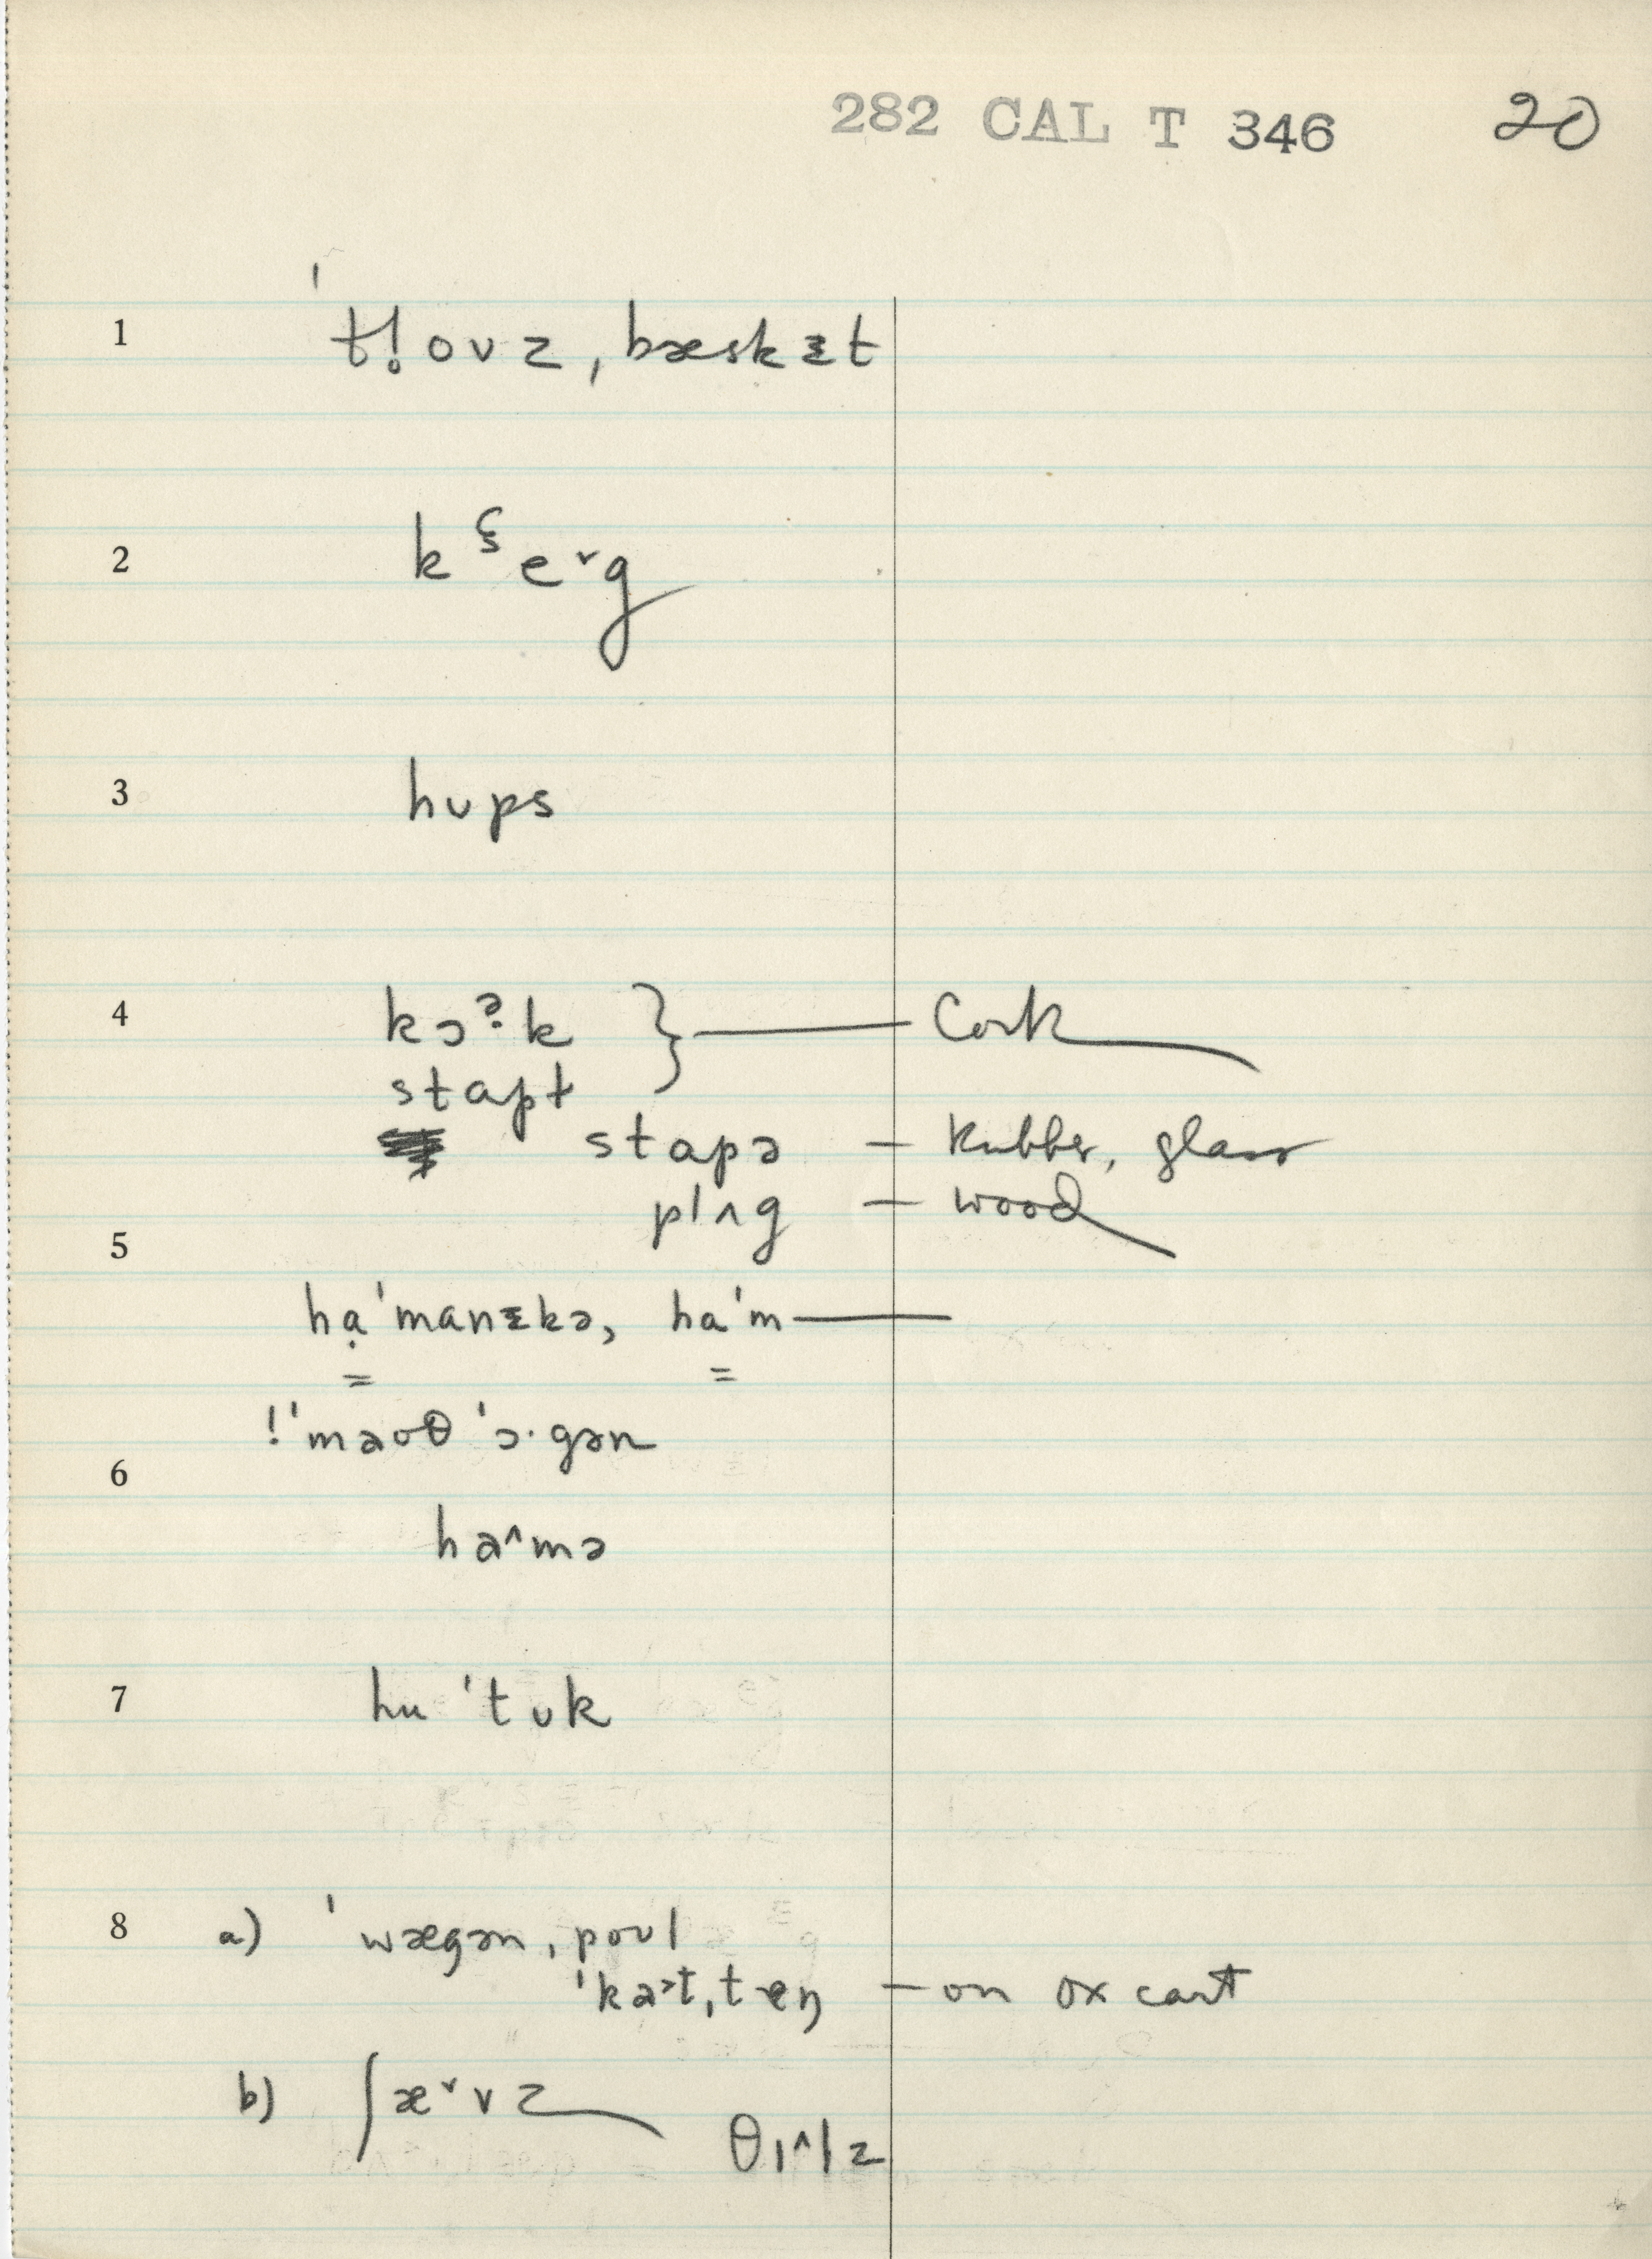 282 CAL T 346 20
1 ˈtl̥ovz, bæskᵻt
2 kᶓe˅g
3 hups
4 kɔˀk } — Cork
stapt
stapə — Rubber, glass
plʌg — wood
5
hạˈmanᵻkə, haˈm—
6 !ˈmaoθ ˈɔ·gən
ha^mə
7 huˈtuk
8 a) ˈwægən, povl
ˈka˃t, teŋ — on ox cart
b) ʃæ˅vz θɪ^lz